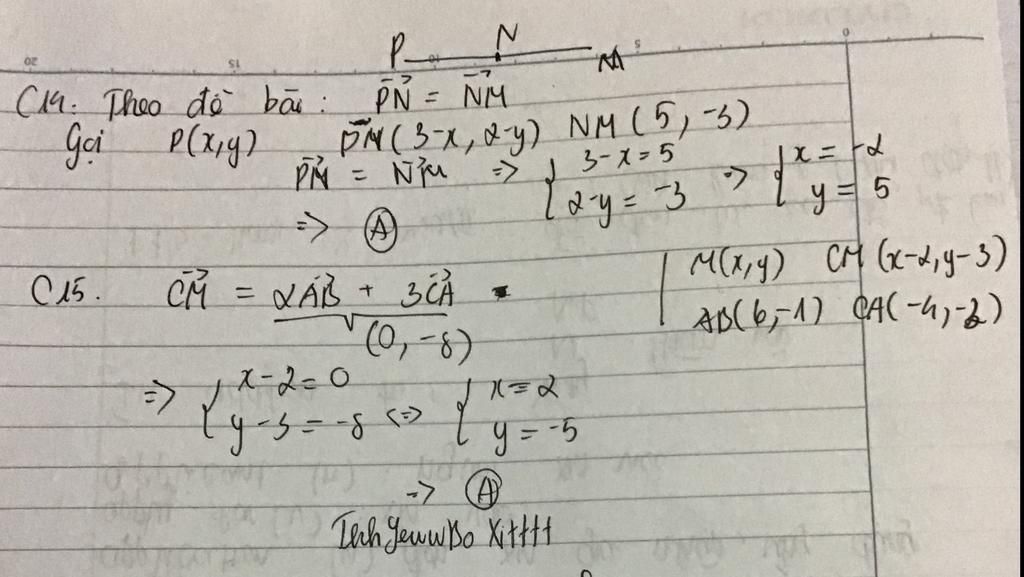 P N M
C14. Theo đề bài: PN = NM
Gọi P(x,y) PN(3-x, 2-y) NM(5, -3)
PN = NM => { 3-x=5 2-y=-3 => { x=-2 y=5
=> A
C15. CM = 2AB + 3CA
(0, -8)
M(x,y) CM(x-2, y-3)
AB(6,-1) CA(-4,-2)
=> { x-2=0 y-3=-8 <=> { x=2 y=-5
=> A